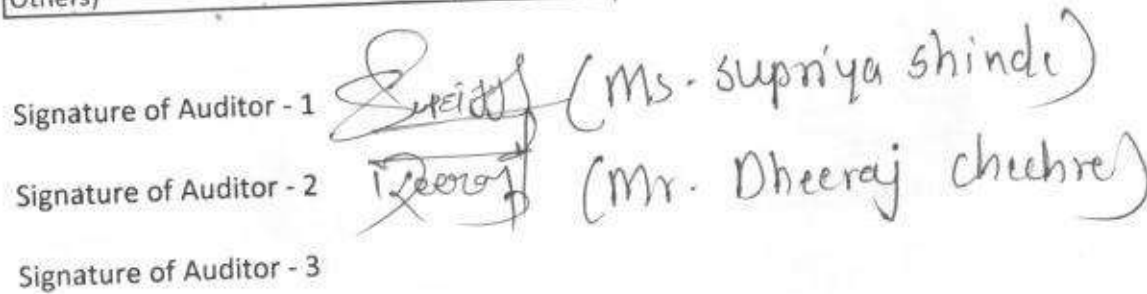 Others)
Signature of Auditor - 1 (Ms. Supriya Shinde)
Signature of Auditor - 2 (Mr. Dheeraj Chechre)
Signature of Auditor - 3